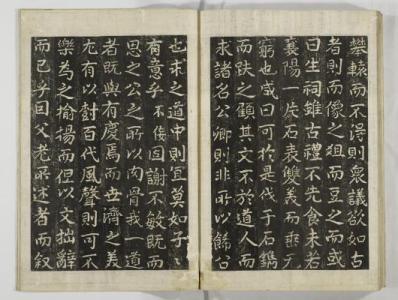 攀轅而不得則衆議欲如古
者則而像之俎而豆之而或
曰生祠雖古禮不先食未若
襄陽一片石表雙義而垂无
窮也咸曰可於是伐于石鐫
而趺之顧其文不於道人而
求諸名公卿則非所以飾公
也求之道中則宜莫如子
有意乎不佞固謝不敏既而
思之公之所以肉骨我一道
者既與有慶焉而世濟之美
尤有以對百代風聲則可不
樂為之揄揚而但以文拙辭
而已乎因父老所述者而叙